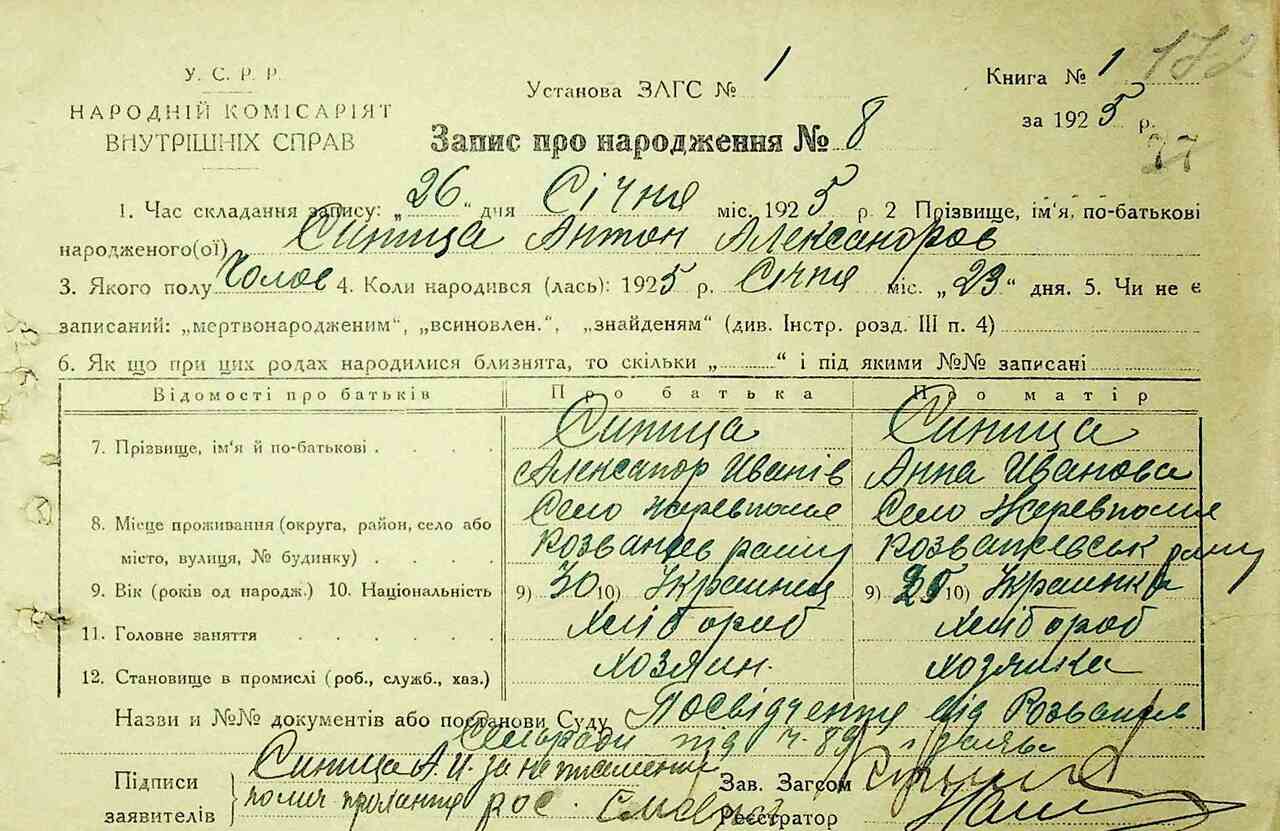 У. С. Р. Р.
НАРОДНІЙ КОМІСАРІЯТ
ВНУТРІШНІХ СПРАВ
Установа ЗАГС № 1
Книга № 1
172
за 1925 р.
27
Запис про народження № 8
1. Час складання запису: „26“ дня Січня міс. 1925 р. 2 Прізвище, ім'я, по-батькові
народженого(ої) Синица Антон Александров
3. Якого полу Чолов 4. Коли народився (лась): 1925 р. Січня міс. „23“ дня. 5. Чи не є
записаний: „мертвонародженим“, „всиновлен.“, „знайденям“ (див. Інстр. розд. III п. 4)
6. Як що при цих родах народилися близнята, то скільки „ “ і під якими №№ записані
Відомості про батьків Про батька Про матір
7. Прізвище, ім'я й по-батькові Синица Синица
Александр Иванів Анна Иванова
8. Місце проживання (округа, район, село або Село Жеревполля Село Жеревполля
місто, вулиця, № будинку) Розважев району Розважевськ району
9. Вік (років од народж.) 10. Національність 9) 30 10) Украинец 9) 25 10) Украинка
11. Головне заняття Хлібороб Хлібороб
12. Становище в промислі (роб., служб., хаз.) Хозяин. Хозяйка
Назви и №№ документів або постанови Суду Посвідчення від Розважев
Сільради під ч. 89
Підписи
заявителів
Синица А. И. за неписьмени
рос.
Зав. Загсом
Реєстратор